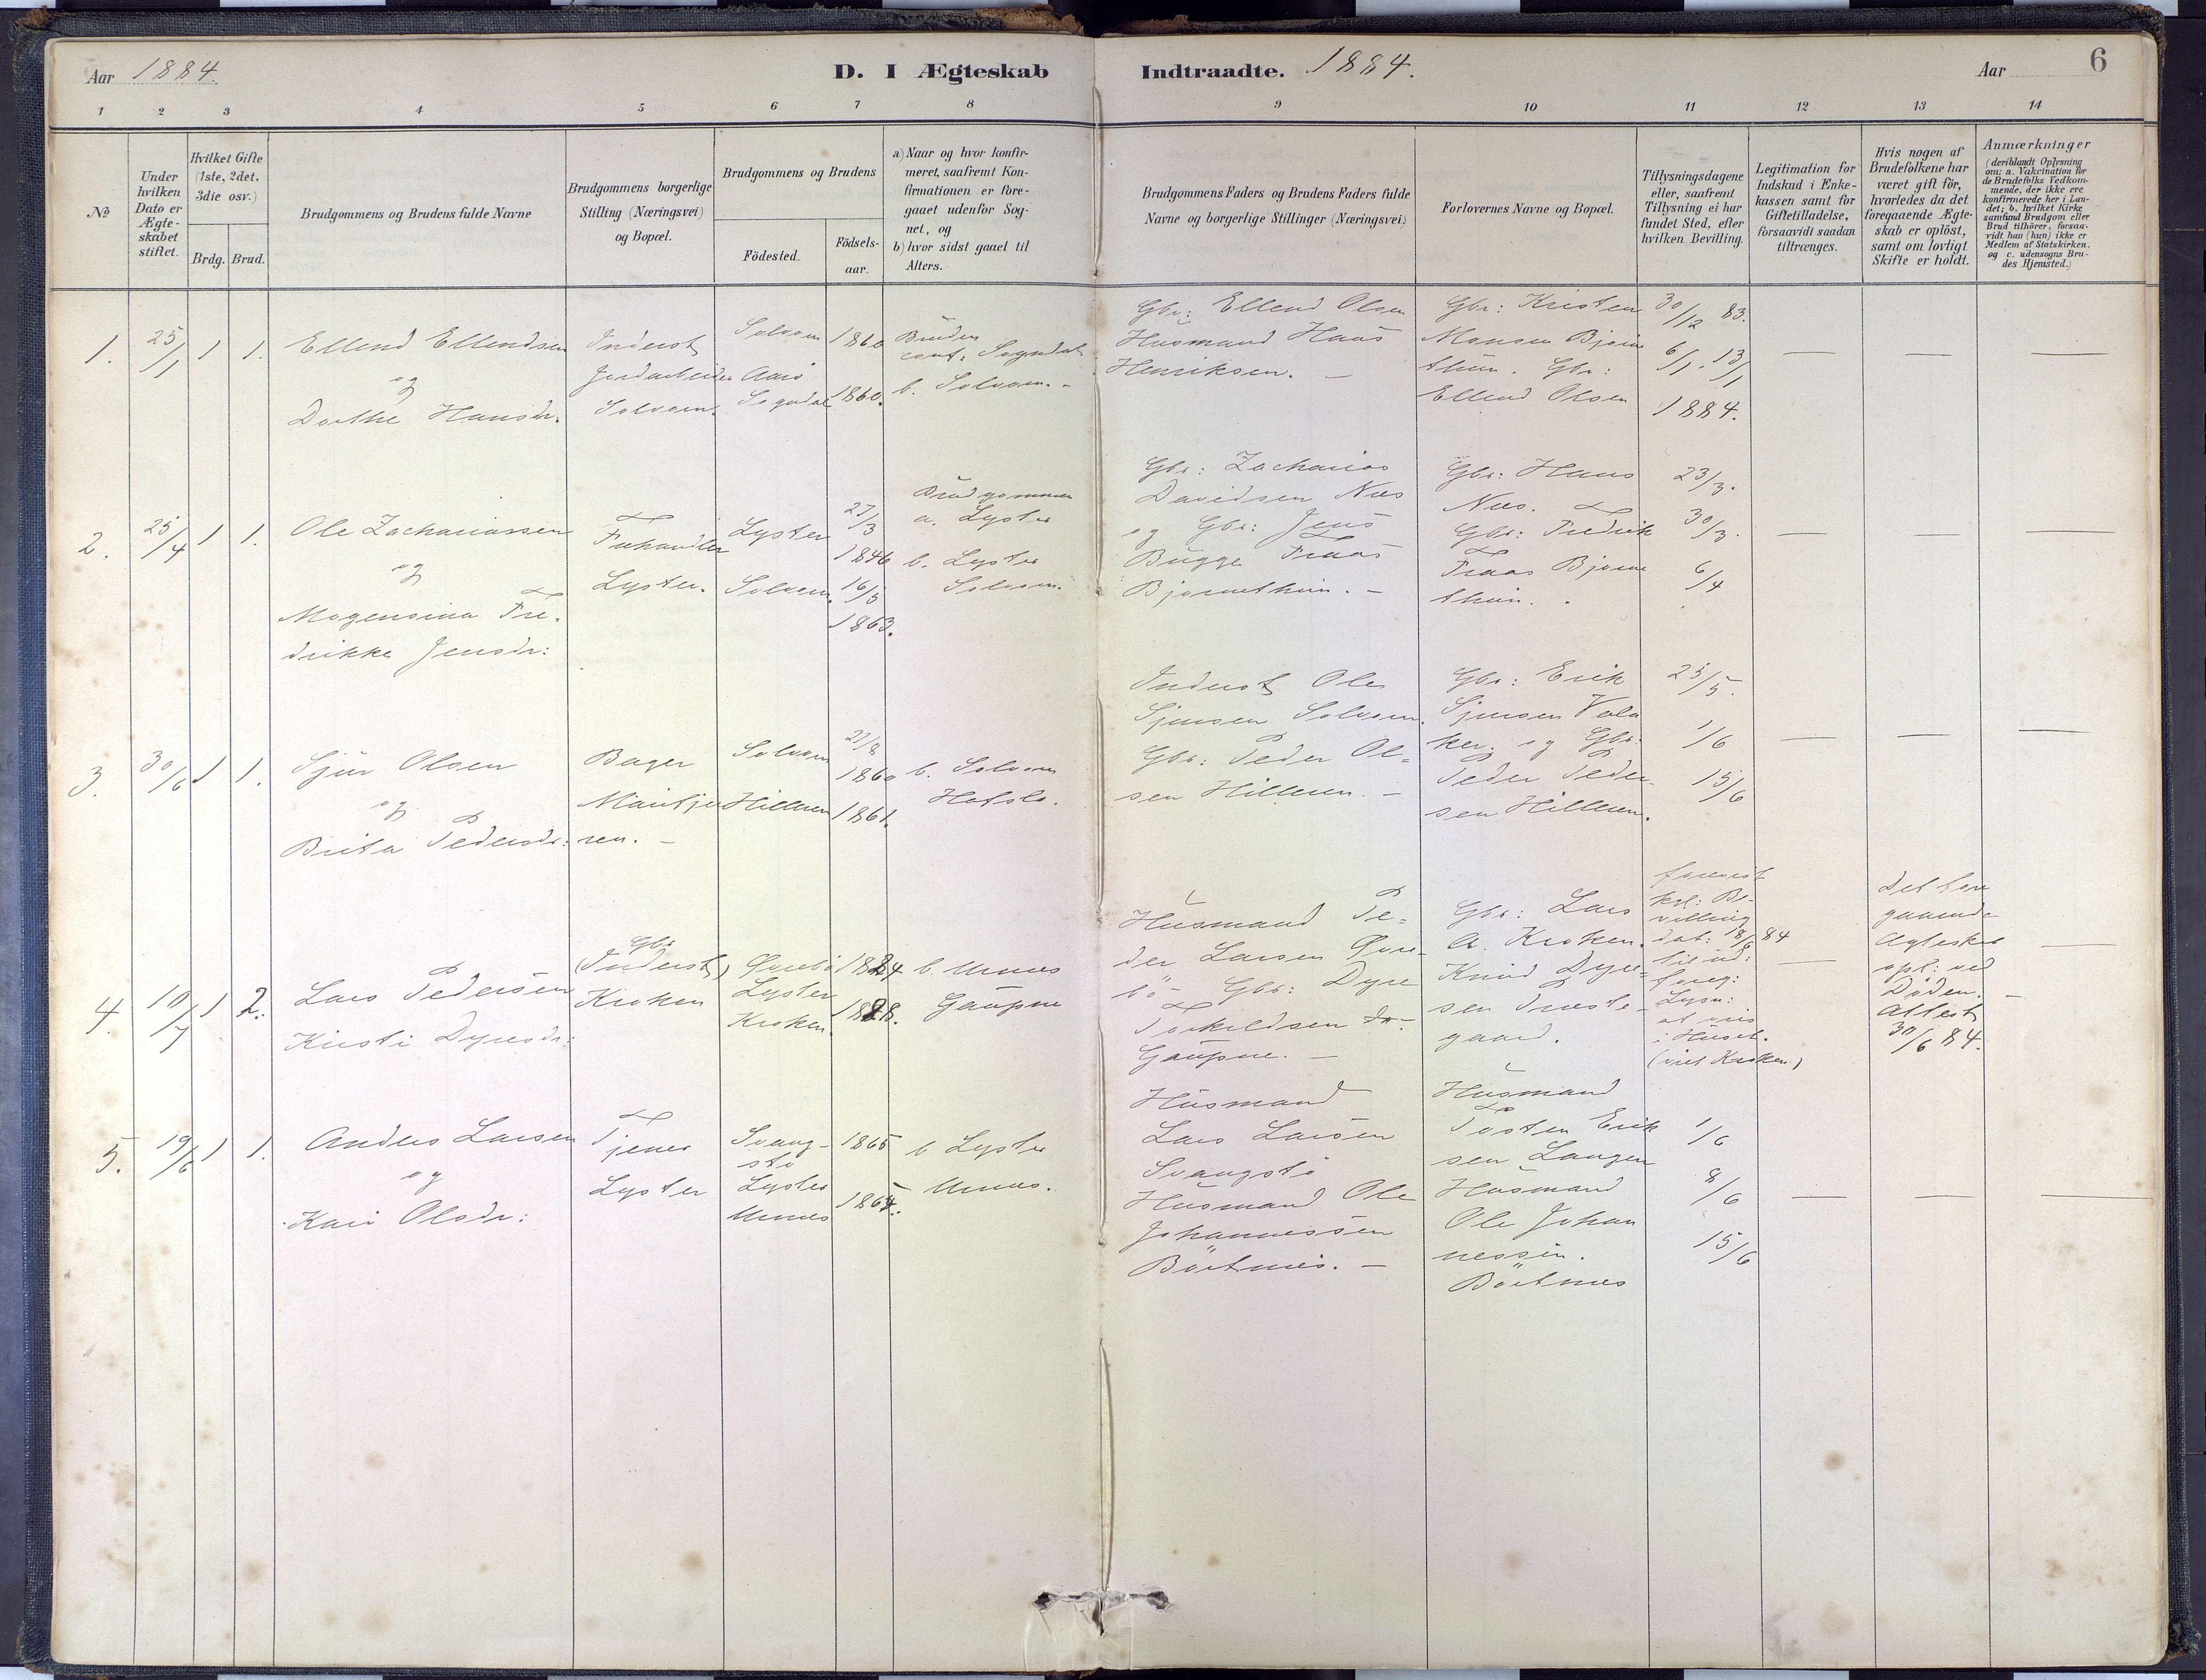 Aar 1884.
D. I Ægteskab
Indtraadte. 1884.
Aar
6
1 2 3 4 5 6 7 8 9 10 11 12 13 14
No
Under
hvilken
Dato er
Ægte-
skabet
stiftet.
Hvilket Gifte
(1ste, 2det,
3die osv.)
Brdg. Brud.
Brudgommens og Brudens fulde Navne
Brudgommens borgerlige
Stilling (Næringsvei)
og Bopæl.
Brudgommens og Brudens
Födested.
Födsels-
aar.
a) Naar og hvor konfir-
meret, saafremt Kon-
firmationen er fore-
gaaet udenfor Sog-
net, og
b) hvor sidst gaaet til
Alters.
Brudgommens Faders og Brudens Faders fulde
Navne og borgerlige Stillinger (Næringsvei)
Forlovernes Navne og Bopæl.
Tillysningsdagene
eller, saafremt
Tillysning ei har
fundet Sted, efter
hvilken Bevilling.
Legitimation for
Indskud i Enke-
kassen samt for
Giftetilladelse,
forsaavidt saadan
tiltrænges.
Hvis nogen af
Brudefolkene har
været gift för,
hvorledes da det
foregaaende Ægte-
skab er oplöst,
samt om lovligt
Skifte er holdt.
Anmærkninger
(deriblandt Oplysning
om: a. Vakcination for
de Brudefolks Vedkom-
mende, der ikke ere
konfirmerede her i Lan-
det; b. hvilket Kirke
samfund Brudgom eller
Brud tilhörer, forsaa-
vidt han (hun) ikke er
Medlem af Statskirken.
og c. udensogns Bru-
des Hjemsted.)
1.
25/1
1 1.
Ellend Ellendsen
og
Dorthe Hansdr.
Inderst
Jordarbeider
Solvorn.
Solvorn
Aarö
Sogndal
1860
1860.
Bruden
conf. Sogndal
b. Solvorn. -
Gbr: Ellend Olsen
Husmand Hans
Henriksen. -
Gbr: Kristen
Monsen Bjorne
thun. Gbr:
Ellend Olsen
30/12 83.
6/1. 13/1
1884.
2.
25/4
1 1.
Ole Zachariassen
og
Mogensina Fre-
drikke Jensdr:
Fæhandler
Lyster.
Lyster
Solvorn.
27/3
1846
16/5
1863.
Brudgommen
a. Lyster
b. Lyster
Solvorn.
Gbr: Zacharias
Davidsen Næs
og Gbr: Jens
Bugge Fraas
Bjornethun. -
Gbr: Hans
Næs.
Gbr: Fredrik
Fraas Bjorne
thun.
23/3.
30/3.
6/4
3.
30/6
1 1.
Sjur Olsen
og
Brita Pedersdr:
Bager
Marifjæ
ren. -
Solvorn
Hilleren
21/8
1860
1861.
b. Solvorn
Hafslo.
Inderst Ole
Sjursen Solvorn.
Gbr: Peder Ol-
sen Hilleren. -
Gbr: Erik
Sjursen Vala
ker. og Gbr.
Peder Peder-
sen Hilleren.
25/5.
1/6
15/6
4.
10/7
1 2.
Lars Pedersen
Kirsti Dyresdr:
Gbr
(Inderst)
Kroken
Ørebö
Lyster
Kroken.
1824
1828.
b. Urnes
Gaupne
Husmand Pe-
der Larsen Øre-
bö - Gbr: Dyre
Torkildsen
Gaupne. -
Gbr: Lars
A. Kroken.
Knud Dyre-
sen Preste-
gaard.
forevist
kgl: Be-
villing
dat: 18/6 84
til ud:
foreg:
Lysn:
at vies
i Huset.
(viet Kroken)
Det fore
gaaende
Ægteskab
opl: ved
Döden.
Attest
30/6 84.
5.
19/6
1 1.
Anders Larsen
og
Kari Olsdr:
Tjener
Lyster
Svang-
stö
Lyster
Urnes
1865
1864.
b Lyster
Urnes.
Husmand
Lars Larsen
Svangstö
Husmand Ole
Johannessen
Börtnes. -
Husmand
Tosten Erik
sen Langen
Husmand
Ole Johan
nessen.
Börtnes
1/6
8/6
15/6